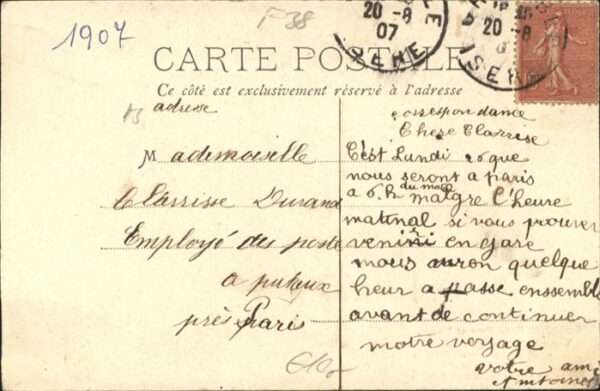 1907
F 38
20 -8
07
ISERE
20 -8
ISERE
CARTE POSTALE
Ce côté est exclusivement réservé à l'adresse
adresse
Mademoiselle
Clarrisse Durand
Employé des poste
a puteux
près Paris
correspondance
Chere Clarrise
C'est Lundi 26 que
nous seront a paris
a 6. h du mat malgre l'heure
matinal si vous prouver
venir en gare
nous auron quelque
heur a passe enssemble
avant de continuer
notre voyage
votre ami
Antoine